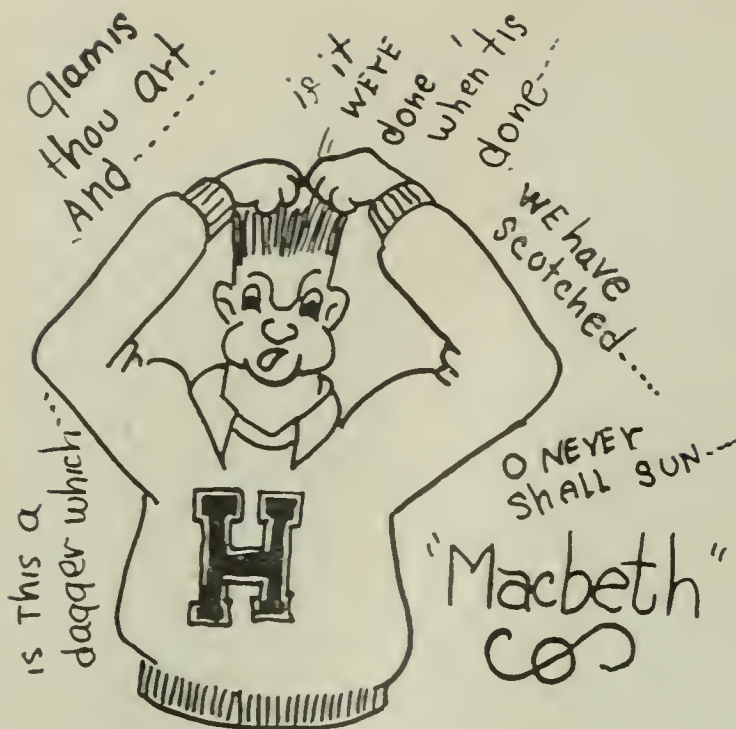 Glamis
thou Art
And......
if it
WERE
done
when 'tis
done....
WE have
scotched.....
O NEVER
SHALL SUN....
is This a
dagger which....
H
"Macbeth"